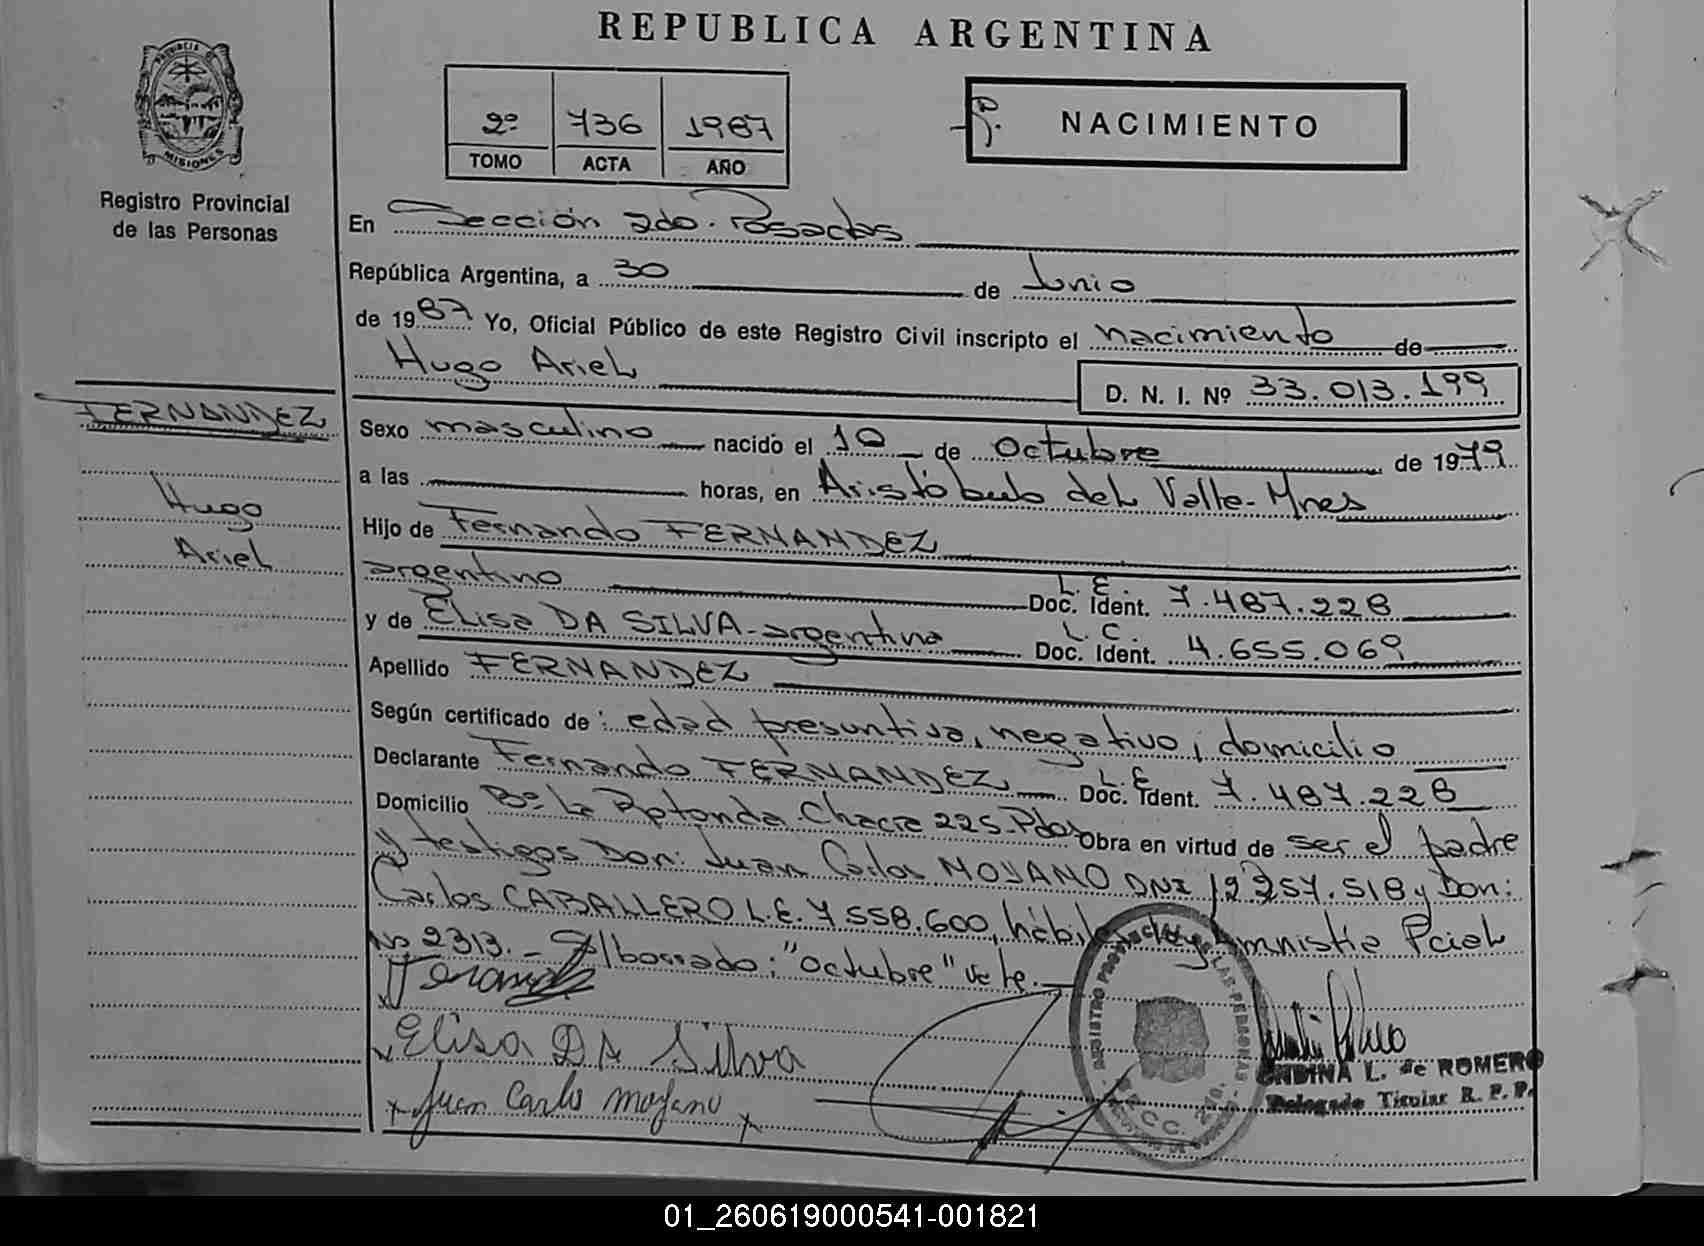 REPUBLICA ARGENTINA
PROVINCIA DE
MISIONES
Registro Provincial
de las Personas
2º 736 1987
TOMO ACTA AÑO
NACIMIENTO
En Sección 2do. Posadas
República Argentina, a 30 de Junio
de 1987 Yo, Oficial Público de este Registro Civil inscripto el nacimiento de
Hugo Ariel
D. N. I. Nº 33.013.199
FERNANDEZ
Hugo
Ariel
Sexo masculino nacido el 10 de octubre de 1979
a las horas, en Aristóbulo del Valle-Mnes
Hijo de Fernando FERNANDEZ
argentino L.E. Doc. Ident. 7.487.228
y de Elisa DA SILVA-argentina L.C. Doc. Ident. 4.655.069
Apellido FERNANDEZ
Según certificado de: edad presuntiva, negativo, domicilio
Declarante Fernando FERNANDEZ L.E Doc. Ident. 7.487.228
Domicilio Bº La Rotonda Chacra 225-Pdas Obra en virtud de ser el padre
y testigos Don: Juan Carlos MOYANO DNI 12.257.518 y Don:
Carlos CABALLERO L.E. 7.558.600, hábil Ley Amnistia Pcial
Nº 2313.- S/borrado: "octubre" Vale.
Elisa DA Silva
Juan Carlos Moyano
REGISTRO PROVINCIAL DE LAS PERSONAS
ONDINA L. de ROMERO
Delegado Titular R. P. P.
01_260619000541-001821